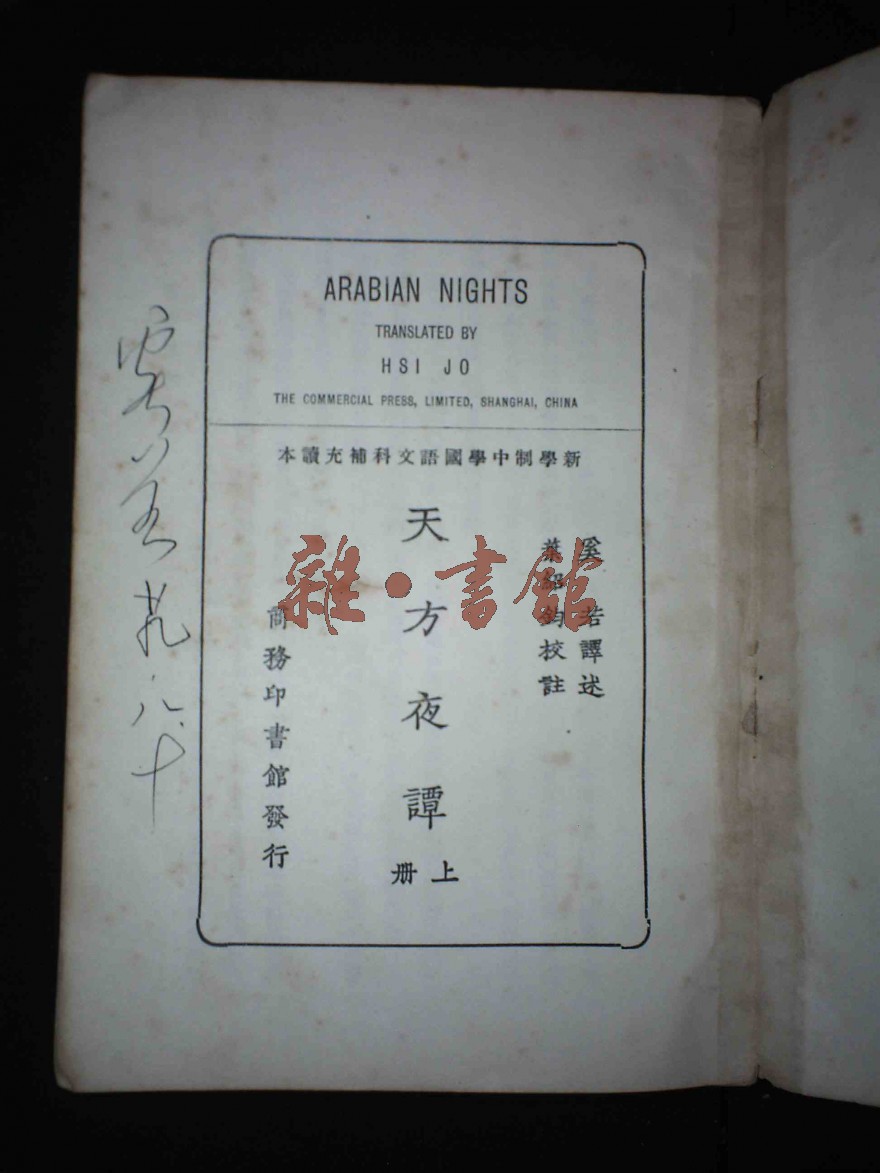 ARABIAN NIGHTS
TRANSLATED BY
HSI JO
THE COMMERCIAL PRESS, LIMITED, SHANGHAI, CHINA
新學制中學國語文科補充讀本
奚若譯述
葉紹鈞校註
天方夜譚
上册
商務印書館發行
雜·書館